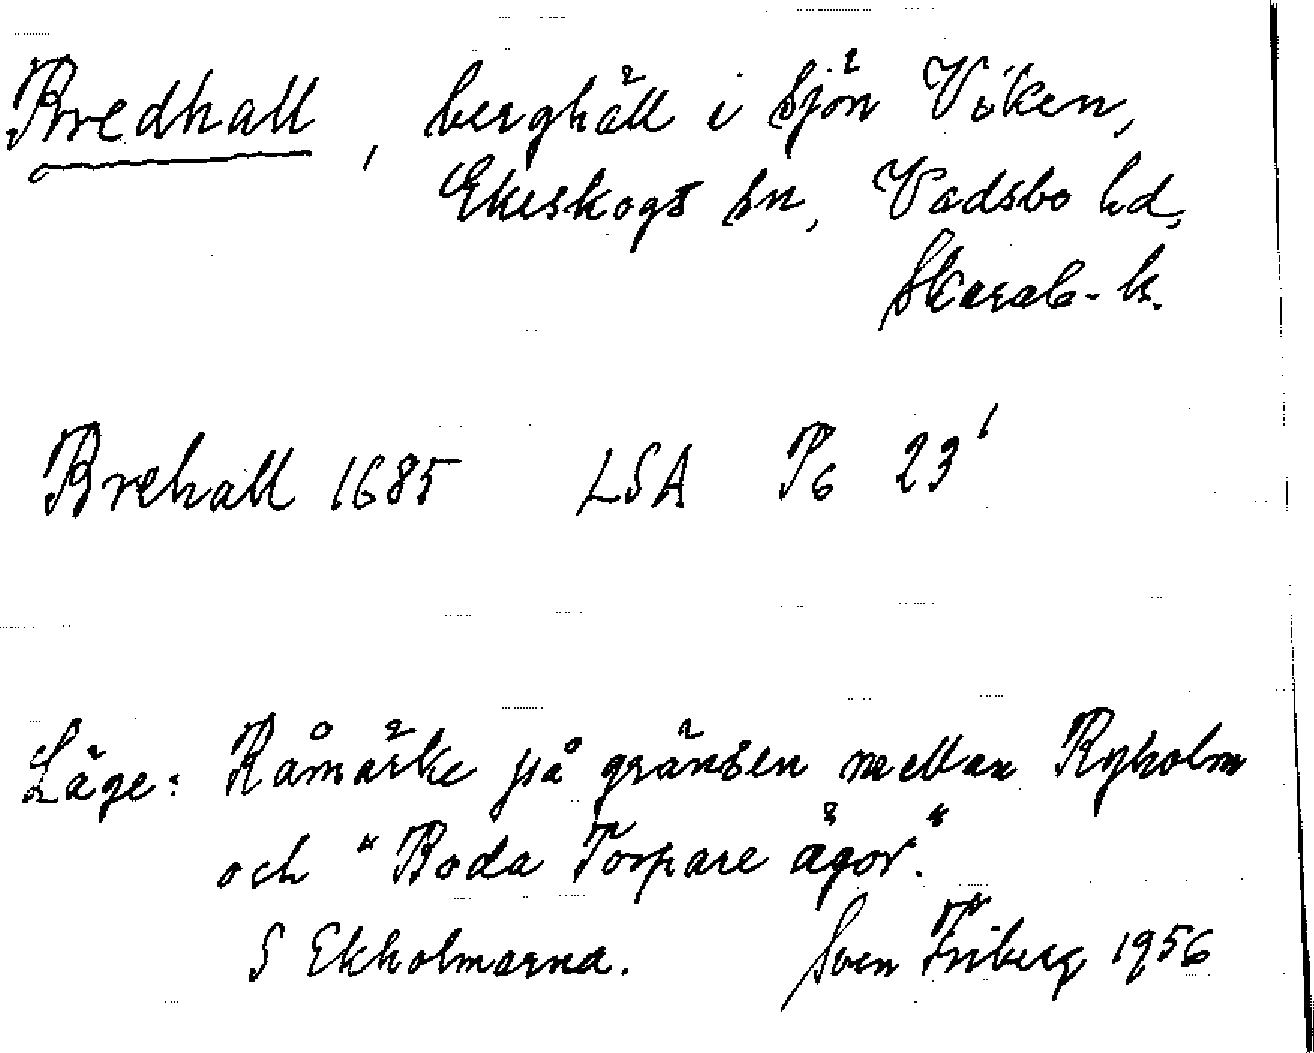 Bredhall, berghäll i sjön Viken,
Ekeskogs sn, Vadsbo hd,
Skarab. l.
Brehall 1685 LSA P6 23¹
Läge: Råmärke på gränsen mellan Ryholm
och "Boda Torpare ägor."
S Ekholmarna. Sven Friberg 1956